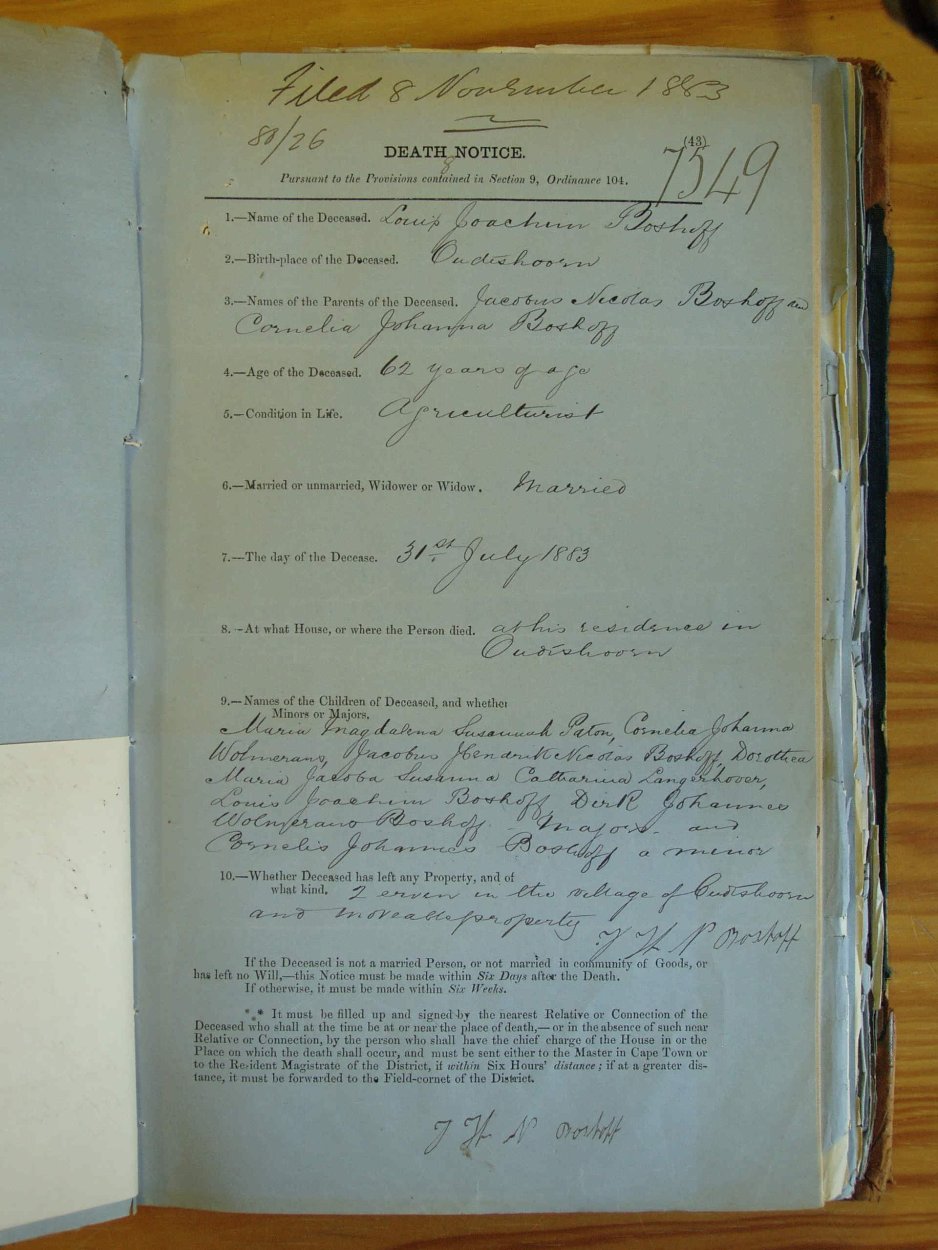 Filed 8 November 1883
80/26
(43)
7549
DEATH NOTICE.
Pursuant to the Provisions contained in Section 9, Ordinance 104.
1.—Name of the Deceased. Louis Joachim Boshoff
2.—Birth-place of the Deceased. Oudtshoorn
3.—Names of the Parents of the Deceased. Jacobus Nicolas Boshoff and
Cornelia Johanna Boshoff
4.—Age of the Deceased. 62 years of age
5.—Condition in Life. Agriculturist
6.—Married or unmarried, Widower or Widow. Married
7.—The day of the Decease. 31st July 1883
8.—At what House, or where the Person died. at his residence in
Oudtshoorn
9.—Names of the Children of Deceased, and whether
Minors or Majors,
Maria Magdalena Susannah Paton, Cornelia Johanna
Wolmerans, Jacobus Hendrik Nicolas Boshoff, Dorothea
Maria Jacoba Susanna Catharina Langerhover,
Louis Joachim Boshoff, Dirk Johannes
Wolmerans Boshoff - Majors - and
Cornelis Johannes Boshoff a minor
10.—Whether Deceased has left any Property, and of
what kind, 2 erven in the village of Oudtshoorn
and moveable property
J H N Boshoff
If the Deceased is not a married Person, or not married in community of Goods, or
has left no Will,—this Notice must be made within Six Days after the Death.
If otherwise, it must be made within Six Weeks.
*** It must be filled up and signed by the nearest Relative or Connection of the
Deceased who shall at the time be at or near the place of death,—or in the absence of such near
Relative or Connection, by the person who shall have the chief charge of the House in or the
Place on which the death shall occur, and must be sent either to the Master in Cape Town or
to the Resident Magistrate of the District, if within Six Hours' distance; if at a greater dis-
tance, it must be forwarded to the Field-cornet of the District.
J H N Boshoff